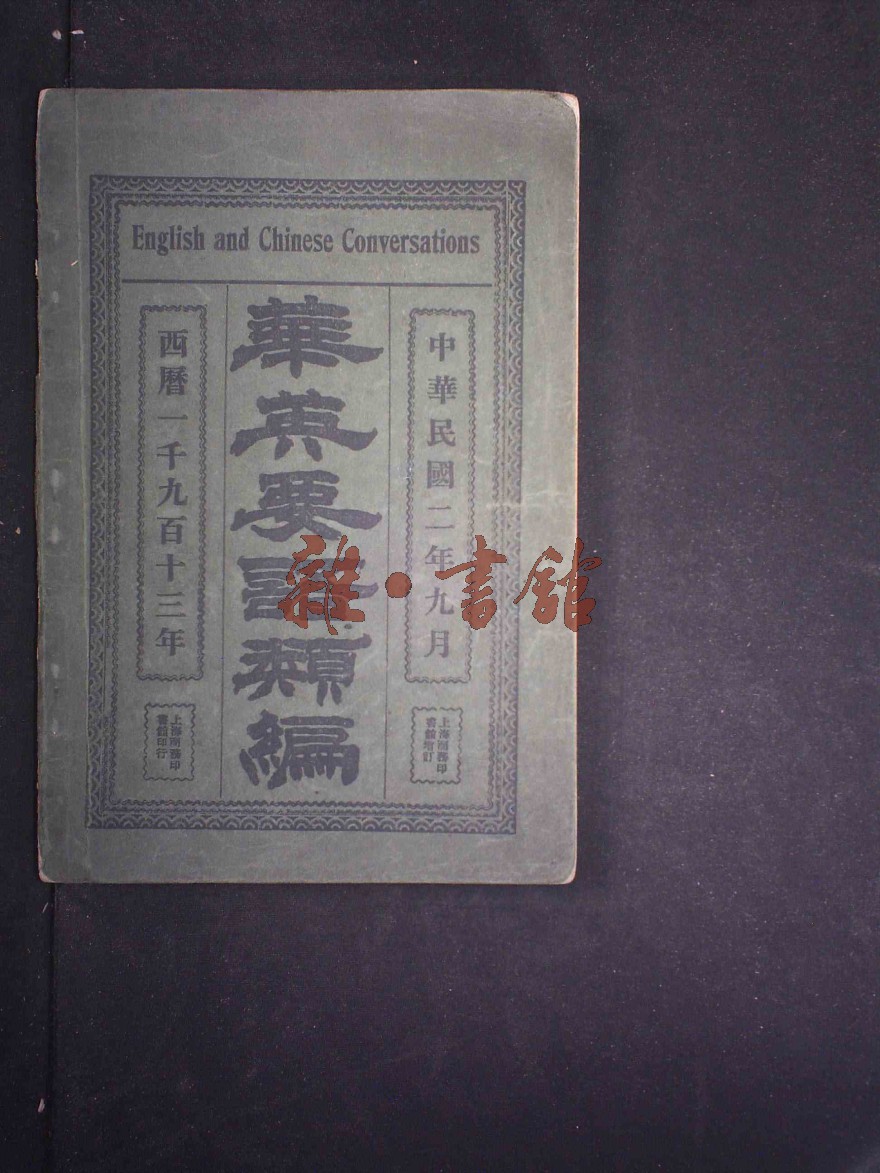 English and Chinese Conversations
中華民國二年九月
上海商務印
書館增訂
華英要語類編
西曆一千九百十三年
上海商務印
書館印行
雜·書館